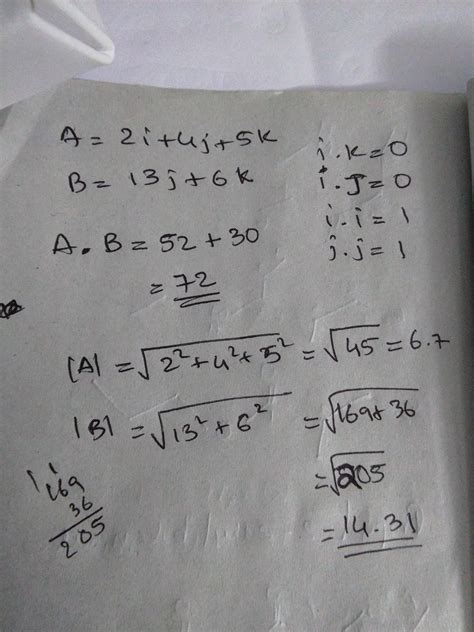 A = 2i+4j+5k
B = 13j+6k
i.k=0
i.J=0
i.i=1
j.j=1
A.B = 52+30
= 72
|A| = √2²+4²+5² = √45 = 6.7
|B| = √13²+6² = √169+36
= √205
= 14.31
169
36
205